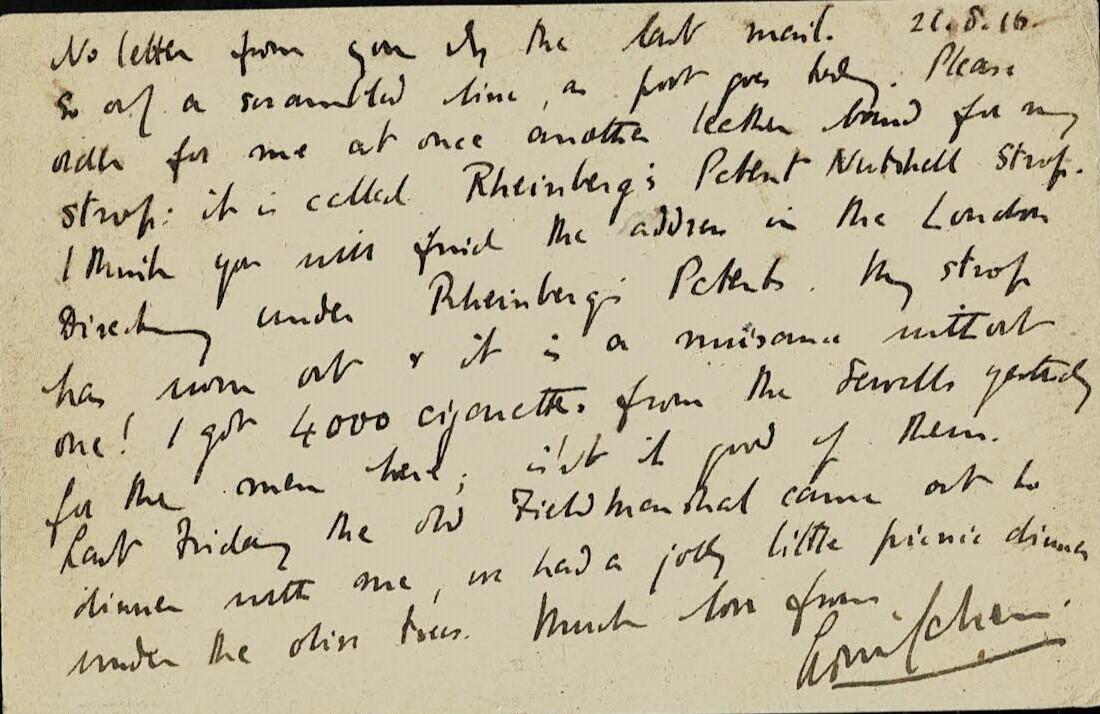 No letter from you by the last mail. 21.8.16.
So only a scrambled line, as post goes today. Please
order for me at once another leather band for my
strop: it is called Rheinberg's Patent Nutshell Strop.
I think you will find the address in the London
Directory under Rheinberg's Patents. My strop
has worn out & it is a nuisance without
one! I got 4000 cigarettes from the Sewells yesterday
for the men here; isn't it good of them.
Last Friday the old Field Marshal came out to
dinner with me, we had a jolly little picnic dinner
under the olive trees. Much love from